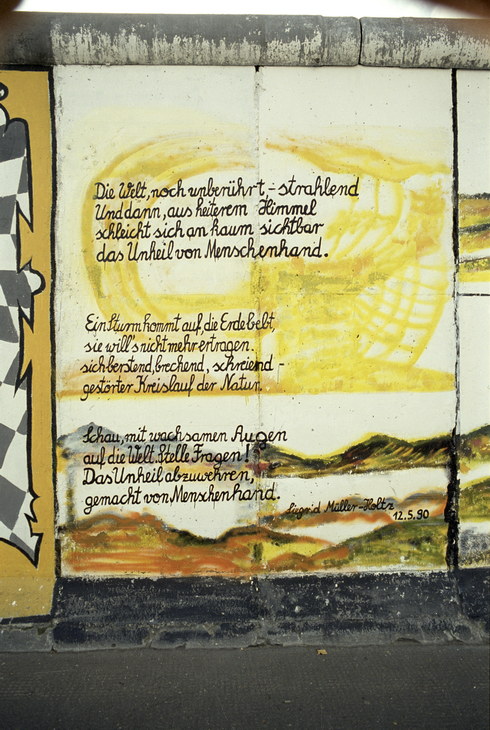 Die Welt, noch unberührt, - strahlend
Und dann, aus heiterem Himmel
schleicht sich an kaum sichtbar
das Unheil von Menschenhand.
Ein Sturm kommt auf, die Erde bebt,
sie will's nicht mehr ertragen
sich berstend, brechend, schreiend -
gestörter Kreislauf der Natur.
Schau, mit wachsamen Augen
auf die Welt. Stelle Fragen!
Das Unheil abzuwehren,
gemacht von Menschenhand.
Siegrid Müller-Holtz
12.5.90